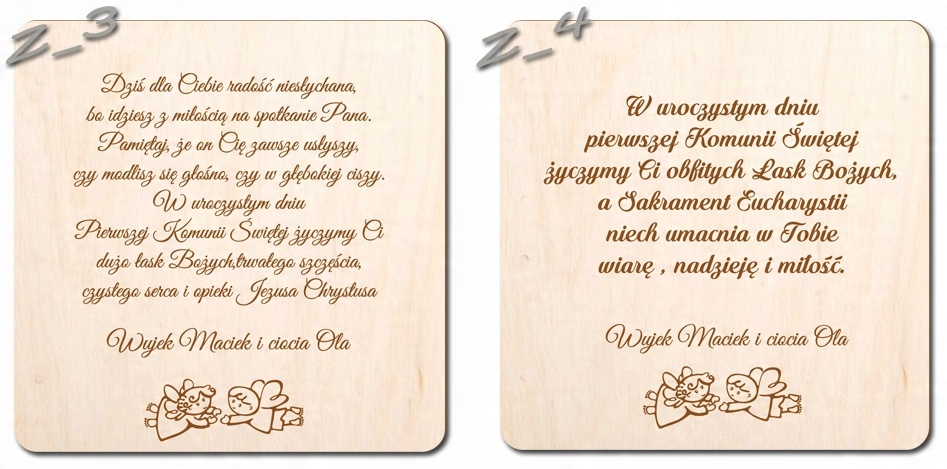 Z_3
Dziś dla Ciebie radość niesłychana,
bo idziesz z miłością na spotkanie Pana.
Pamiętaj, że on Cię zawsze usłyszy,
czy modlisz się głośno, czy w głębokiej ciszy.
W uroczystym dniu
Pierwszej Komunii Świętej życzymy Ci
dużo łask Bożych,trwałego szczęścia,
czystego serca i opieki Jezusa Chrystusa
Wujek Maciek i ciocia Ola
Z_4
W uroczystym dniu
pierwszej Komunii Świętej
życzymy Ci obfitych Łask Bożych,
a Sakrament Eucharystii
niech umacnia w Tobie
wiarę , nadzieję i miłość.
Wujek Maciek i ciocia Ola